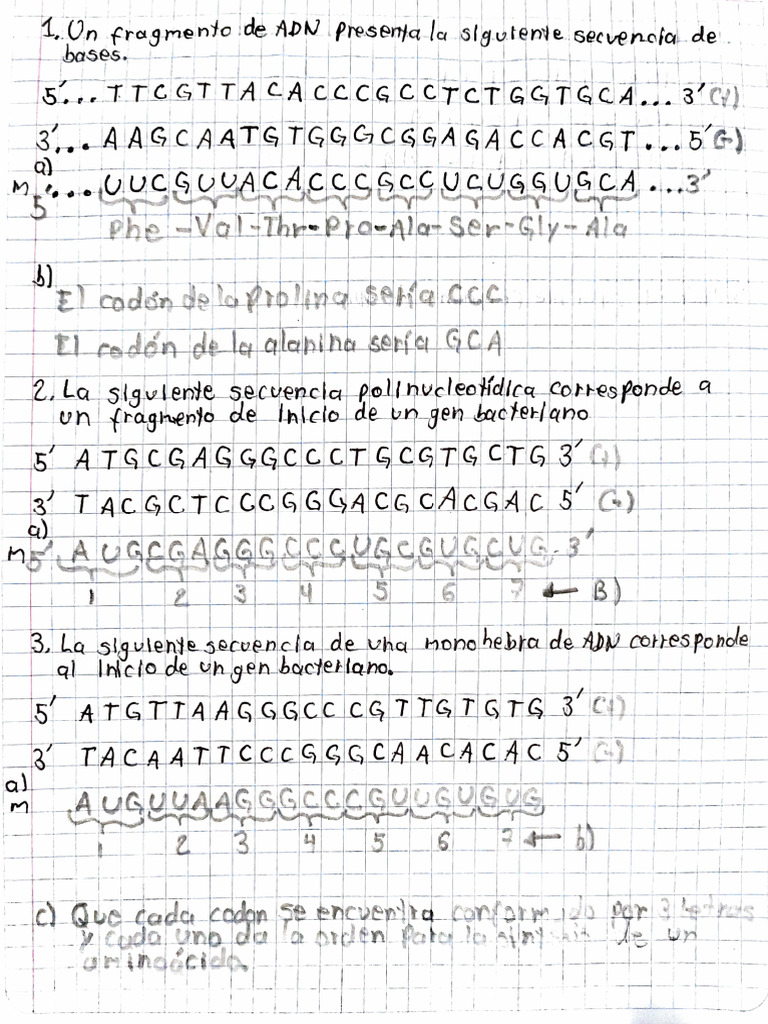 1. Un fragmento de ADN presenta la siguiente secuencia de
bases.
5'... TTCGTTACACCCGCCTCTGGTGCA... 3' (+)
3'... AAGCAATGTGGGCGGAGACCACGT... 5' (-)
a)
m 5'... UUCGUUACACCCGCCUCUGGUGCA...3'
Phe -Val-Thr-Pro-Ala-Ser-Gly-Ala
b)
El codón de la prolina sería CCC
El codón de la alanina sería GCA
2. La siguiente secuencia polinucleotídica corresponde a
un fragmento de inicio de un gen bacteriano
5' ATGCGAGGGCCCTGCGTGCTG 3' (+)
3' TACGCTCCCGGGACGCACGAC 5' (-)
a)
m 5' AUGCGAGGGCCCUGCGUGCUG-3'
1 2 3 4 5 6 7 ← B)
3. La siguiente secuencia de una monohebra de ADN corresponde
al inicio de un gen bacteriano.
5' ATGTTAAGGGCCCGTTGTGTG 3' (+)
3' TACAATTCCCGGGCAACACAC 5' (-)
a)
m AUGUUAAGGGCCCGUUGUGUG
1 2 3 4 5 6 7 ← b)
c) Que cada codon se encuentra conformido por 3 letras
y cada uno da la orden para la sintesis de un
aminoácido.